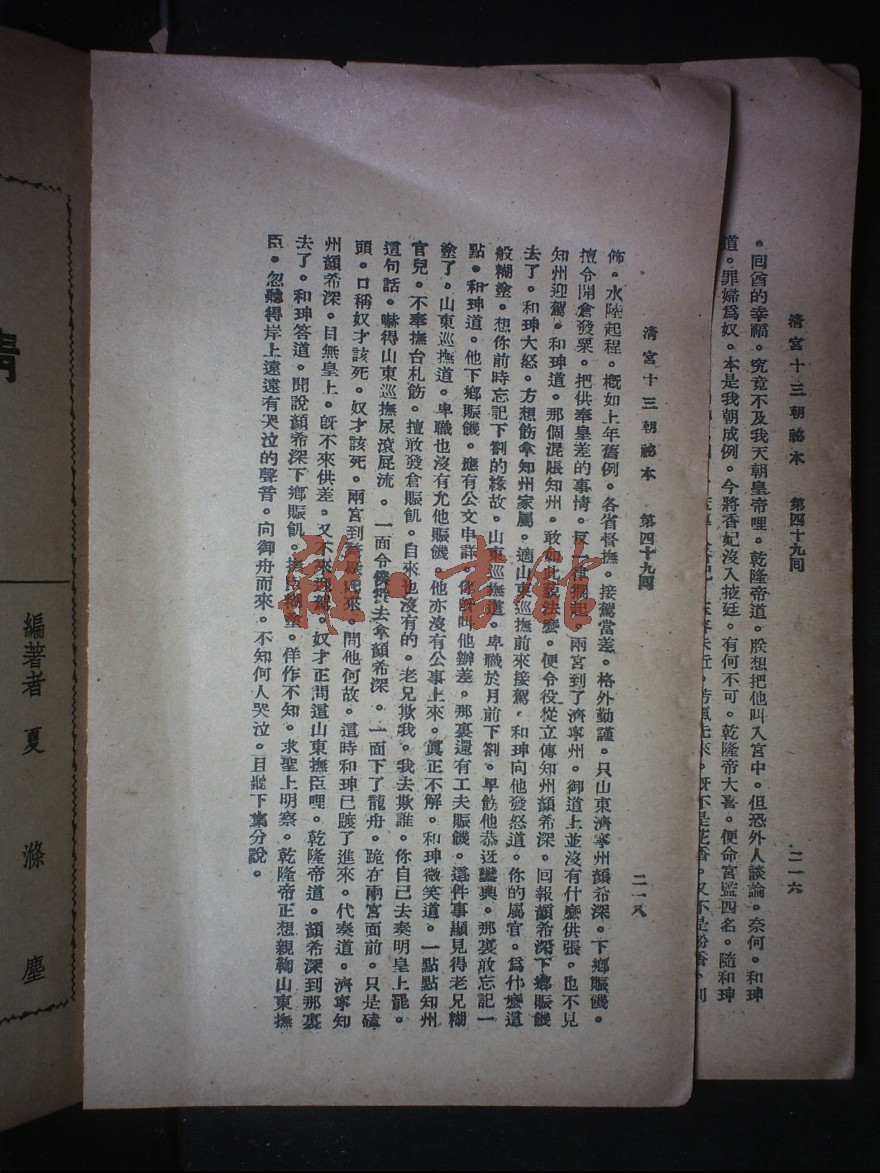 清宮十三朝祕本　第四十九囘　二一六
。囘酋的幸福。究竟不及我天朝皇帝哩。乾隆帝道。朕想把他叫入宮中。但恐外人談論。奈何。和珅
道。罪婦爲奴。本是我朝成例。今將香妃沒入掖廷。有何不可。乾隆帝大喜。便命宮監四名。隨和珅
清宮十三朝祕本　第四十九囘　二一八
佈。水陸起程。概如上年舊例。各省督撫。接駕當差。格外勤謹。只山東濟寧州顏希深。下鄉賑饑。
擅令開倉發粟。把供奉皇差的事情。反一律擱起。兩宮到了濟寧州。御道上並沒有什麼供張。也不見
知州迎駕。和珅道。那個混賬知州。敢如此沒法麼。便令役從立傳知州顏希深。囘報顏希深下鄉賑饑
去了。和珅大怒。方想飭拿知州家屬。適山東巡撫前來接駕。和珅向他發怒道。你的屬官。爲什麼這
般糊塗。想你前時忘記下劄的緣故。山東巡撫道。卑職於月前下劄。早飭他恭迓鑾輿。那裏敢忘記一
點。和珅道。他下鄉賑饑。應有公文申詳。你旣叫他辦差。那裏還有工夫賑饑。這件事顯見得老兄糊
塗了。山東巡撫道。卑職也沒有允他賑饑。他亦沒有公事上來。眞正不解。和珅微笑道。一點點知州
官兒。不奉撫台札飭。擅敢發倉賑飢。自來也沒有的。老兄欺我。我去欺誰。你自己去奏明皇上罷。
這句話。嚇得山東巡撫尿滾屁流。一面令僕從去拿顏希深。一面下了龍舟。跪在兩宮面前。只是磕
頭。口稱奴才該死。奴才該死。兩宮到 來。問他何故。這時和珅已踱了進來。代奏道。濟寧知
州顏希深。目無皇上。旣不來供差。又不來迎駕。奴才正問這山東撫臣哩。乾隆帝道。顏希深到那裏
去了。和珅答道。聞說顏希深下鄉賑飢。撫 佯作不知。求聖上明察。乾隆帝正想親鞫山東撫
臣。忽聽得岸上遠遠有哭泣的聲音。向御舟而來。不知何人哭泣。且聽下囘分說。
編著者　夏滌塵
清
雅 書館